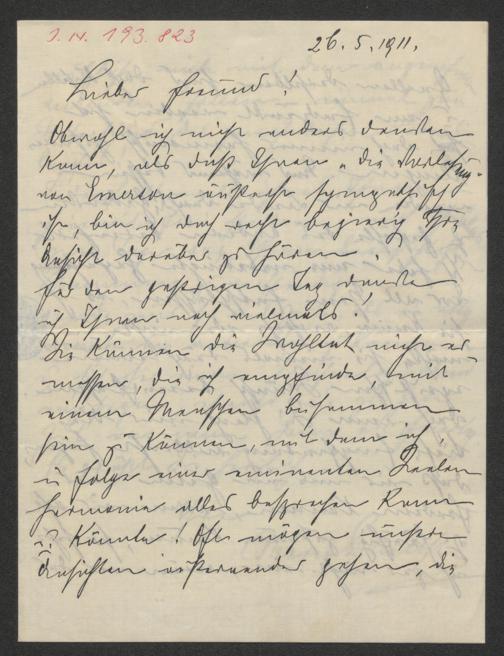 J. N. 193.823
26.5.1911.
Lieber Freund!
Obwohl ich nicht anders denken
kann, als daß Ihnen „die Vorlesung"
von Emerson äußerst sympathisch
ist, bin ich doch recht begierig Ihre
Ansicht darüber zu hören.
Für den gestrigen Tag danke
ich Ihnen noch vielmals.
Sie können die Wohltat nicht er
messen, die ich empfinde, mit
einem Menschen beisammen
sein zu können, mit dem ich,
in folge einer eminenten Seelen
harmonie alles besprechen kann
u. könnte! Oft mögen unsere
Ansichten auseinander gehen, die